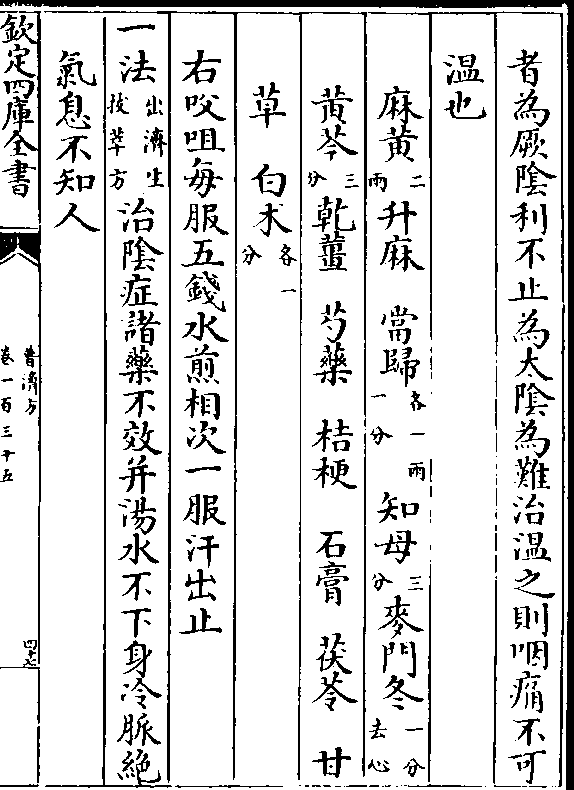 者為厥陰利不止為太陰為難治温之則咽痛不可
温也
麻黄二兩 升麻 當歸各一兩一分 知母三分 麥門冬一分去心
黄芩三分 乾薑 芍藥 桔梗 石膏 茯苓 甘
草 白术各一分
右㕮咀每服五錢水煎相次一服汗出止
一法出濟生拔萃方治陰症諸藥不效并湯水不下身冷脈絶
氣息不知人
欽定四庫全書
普濟方
卷一百三十五
四十七